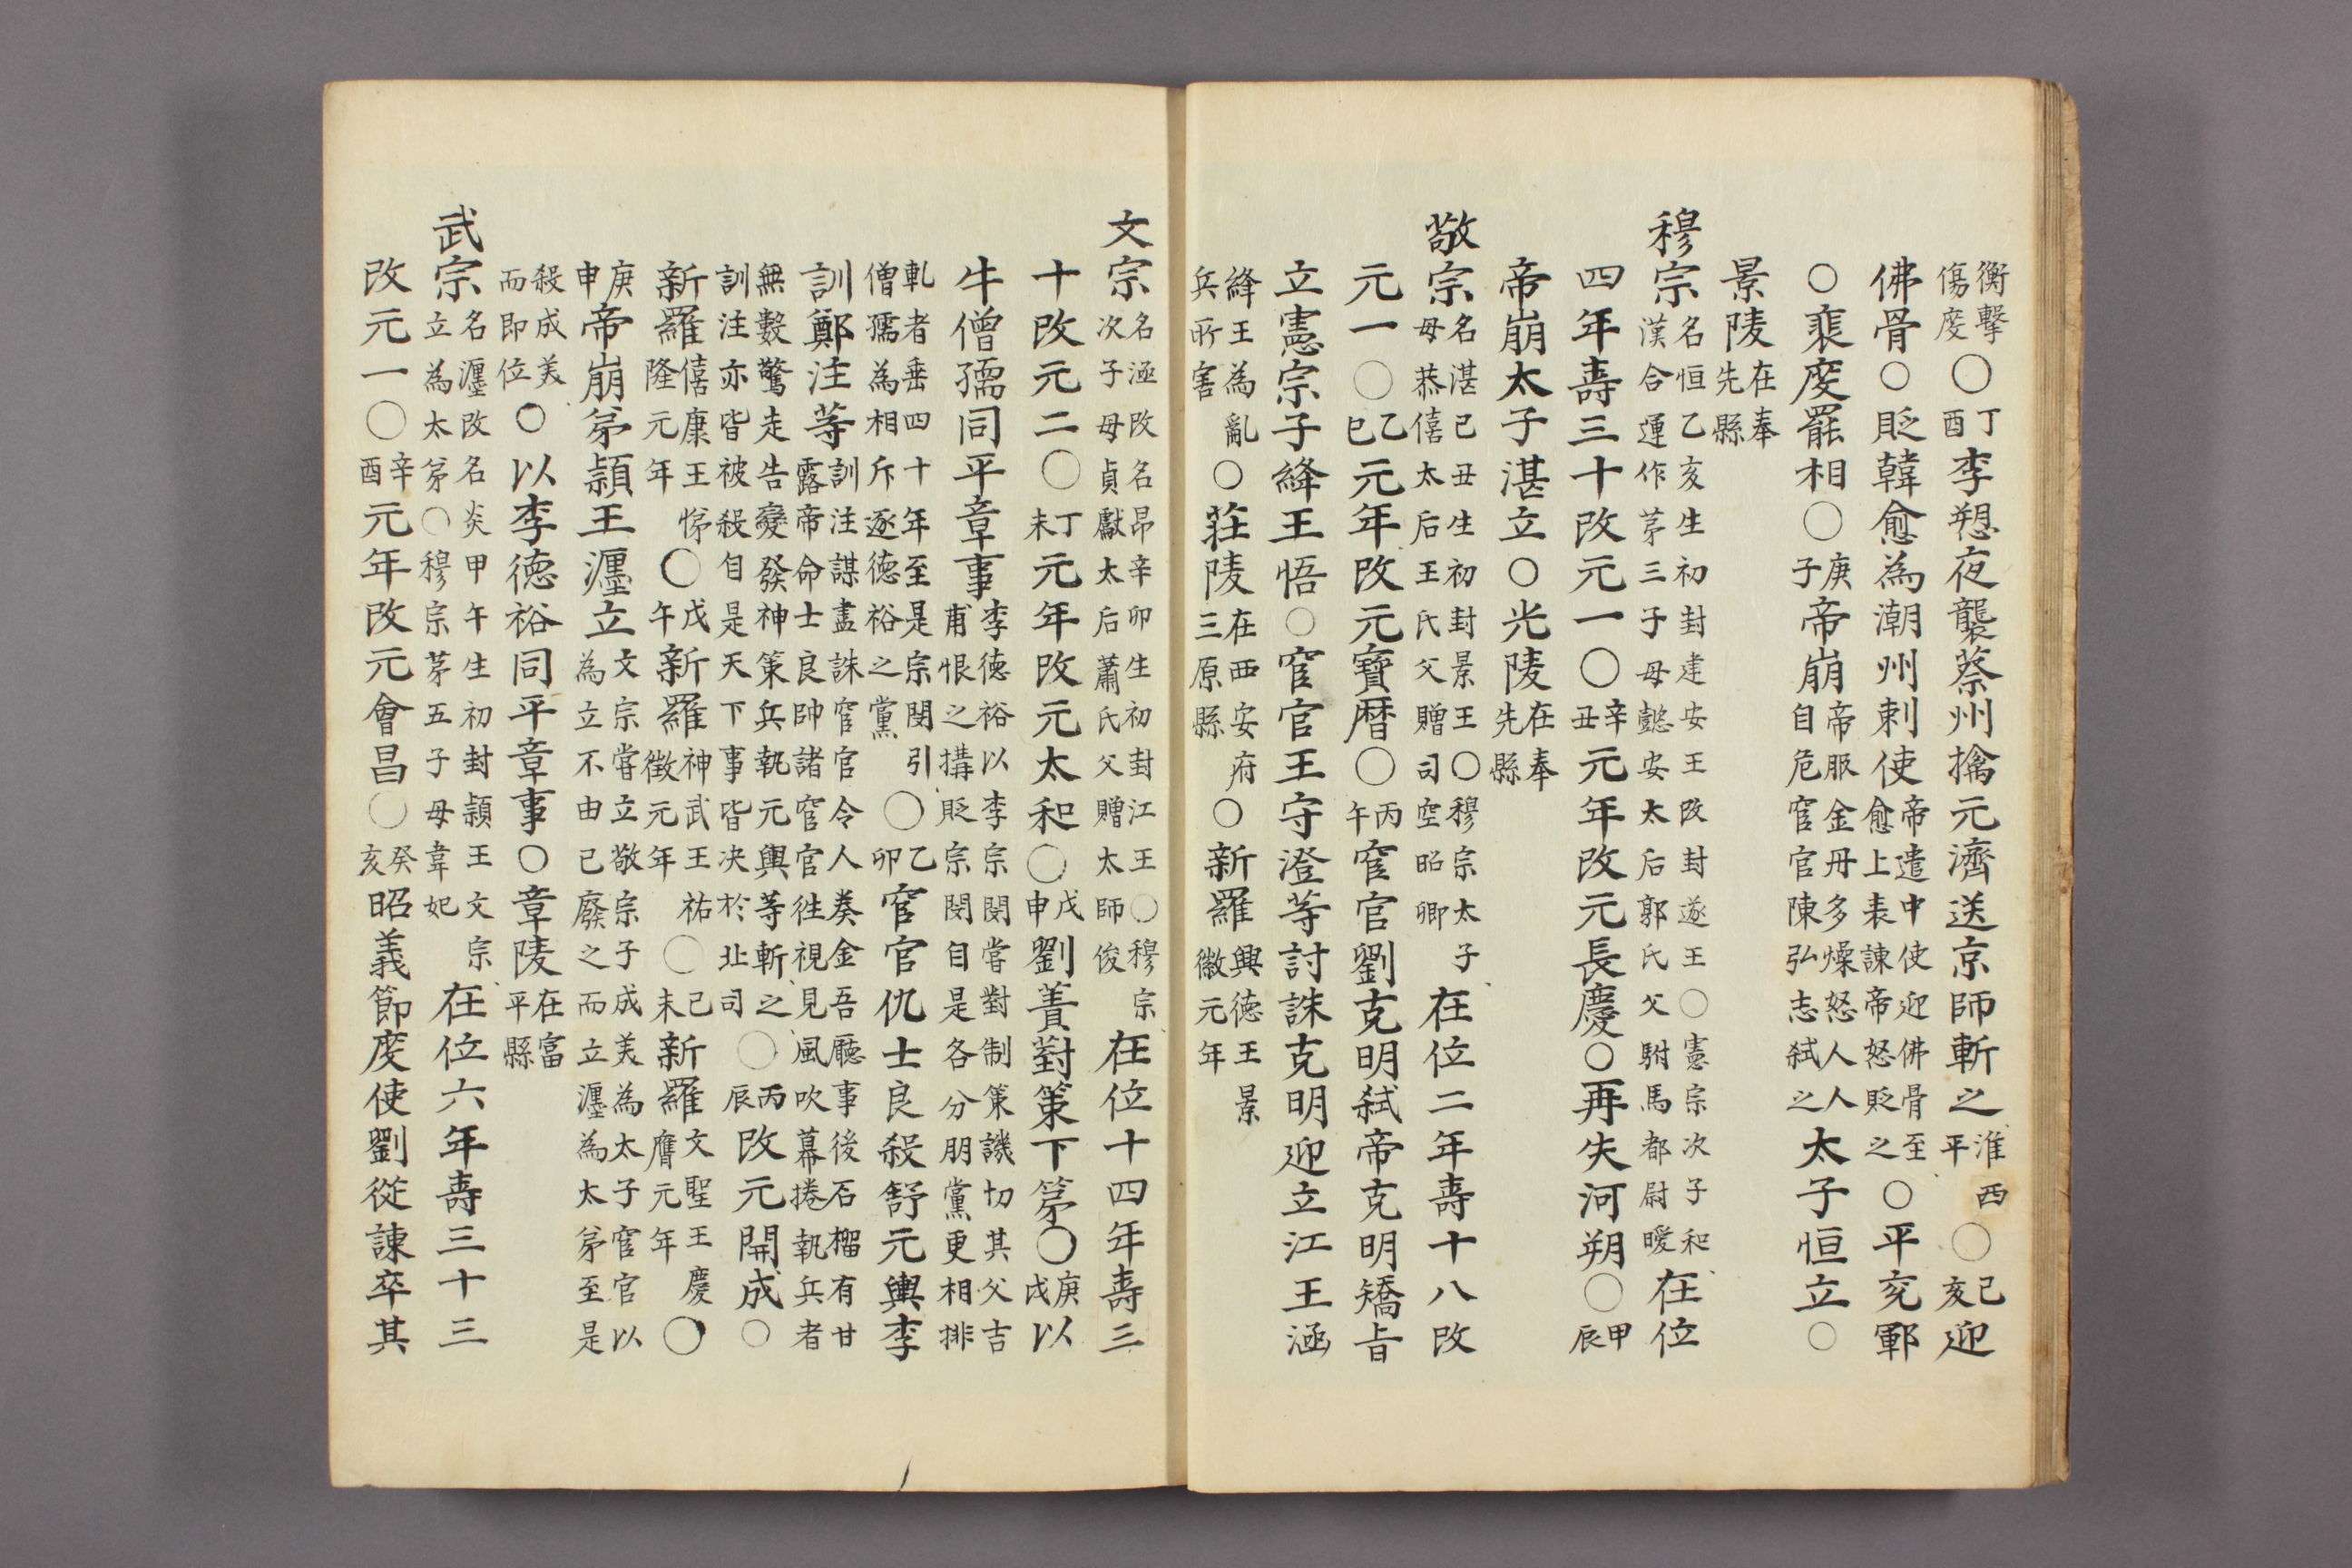 衡擊傷度○丁酉李愬夜襲蔡州擒元濟送京師斬之淮西平○己亥迎
佛骨○貶韓愈為潮州刺使帝遣中使迎佛骨至愈上表諫帝怒貶之○平兖鄆
○裵度罷相○庚子帝崩帝服金丹多燥怒人人自危宦官陳弘志弑之太子恒立○
景陵在奉先縣
穆宗名恒乙亥生初封建安王改封遂王○憲宗次子和漢合運作苐三子母懿安太后郭氏父駙馬都尉曖在位
四年壽三十改元一○辛丑元年改元長慶○再失河朔○甲辰
帝崩太子湛立○光陵在奉先縣
敬宗名湛己丑生初封景王○穆宗太子母恭僖太后王氏父贈司空昭卿在位二年壽十八改
元一○乙巳元年改元寶曆○丙午宦官劉克明弑帝克明矯旨
立憲宗子絳王悟○宦官王守澄等討誅克明迎立江王涵
絳王為亂兵所害○莊陵在西安府三原縣○新羅興德王景徽元年
文宗名涵改名昂辛卯生初封江王○穆宗次子母貞獻太后蕭氏父贈太師俊在位十四年壽三
十改元二○丁未元年改元太和○戊申劉蕡對策下第○庚戌以
牛僧孺同平章事李德裕以李宗閔嘗對制策譏切其父吉甫恨之搆貶宗閔自是各分朋黨更相排
軋者垂四十年至是宗閔引僧孺為相斥逐德裕之黨○乙卯宦官仇士良殺舒元輿李
訓鄭注等訓注謀盡誅宦官令人奏金吾廳事後石榴有甘露帝命士良帥諸宦官徃視見風吹幕捲執兵者
無數驚走告變發神策兵執元輿等斬之訓注亦皆被殺自是天下事皆决於北司○丙辰改元開成○
新羅僖康王悌隆元年○戊午新羅神武王祐徵元年○己未新羅文聖王慶膺元年○
庚申帝崩弟潁王瀍立文宗嘗立敬宗子成美為太子宦官以為立不由己廢之而立瀍為太弟至是
殺成美而即位○以李德裕同平章事○章陵在富平縣
武宗名瀍改名炎甲午生初封潁王文宗立為太弟○穆宗苐五子母韋妃在位六年壽三十三
改元一○辛酉元年改元會昌○癸亥昭義節度使劉從諫卒其